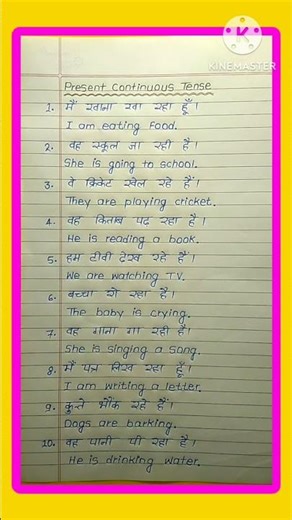 KINEMASTER
Present Continuous Tense
1. मैं खाना खा रहा हूँ।
I am eating Food.
2. वह स्कूल जा रही है।
She is going to school.
3. वे क्रिकेट खेल रहे हैं।
They are playing cricket.
4. वह किताब पढ़ रहा है।
He is reading a book.
5. हम टीवी देख रहे हैं।
We are watching T.V.
6. बच्चा रो रहा है।
The baby is crying.
7. वह गाना गा रही है।
She is singing a song.
8. मैं पत्र लिख रहा हूँ।
I am writing a letter.
9. कुत्ते भौंक रहे हैं।
Dogs are barking.
10. वह पानी पी रहा है।
He is drinking water.